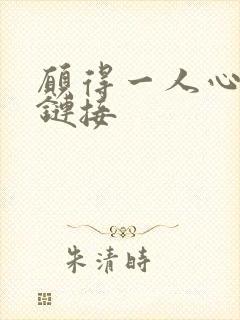 願得一人心
鏈接
朱清時